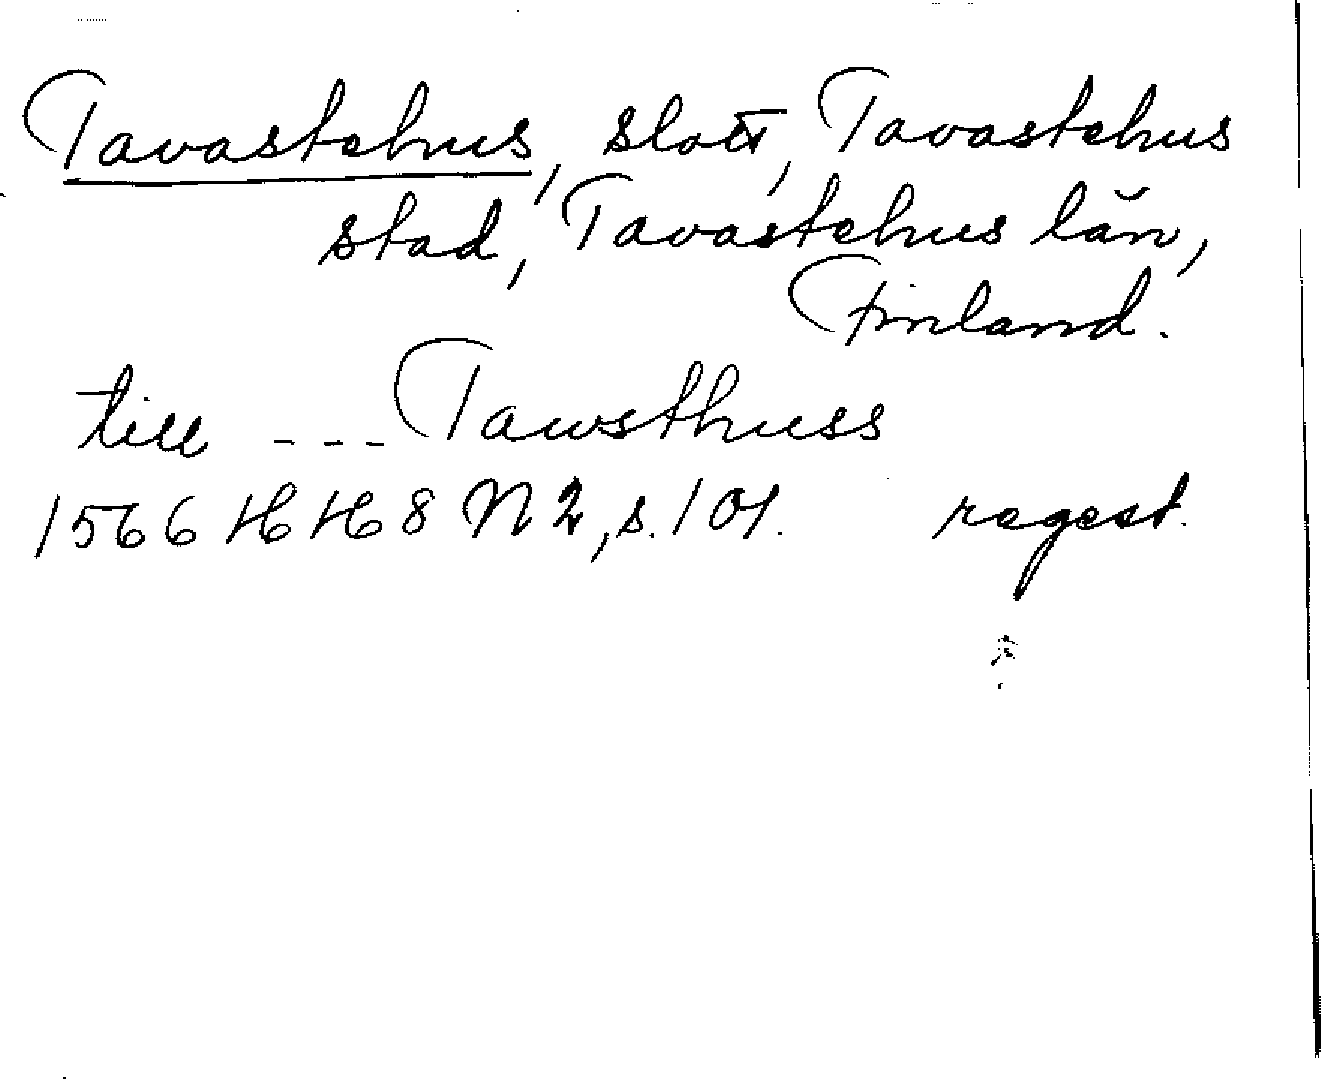 Tavastehus, slott, Tavastehus
stad, Tavastehus län,
Finland.
till --- Tawsthuss
1566 HH 8 N 2, s. 101. regest.